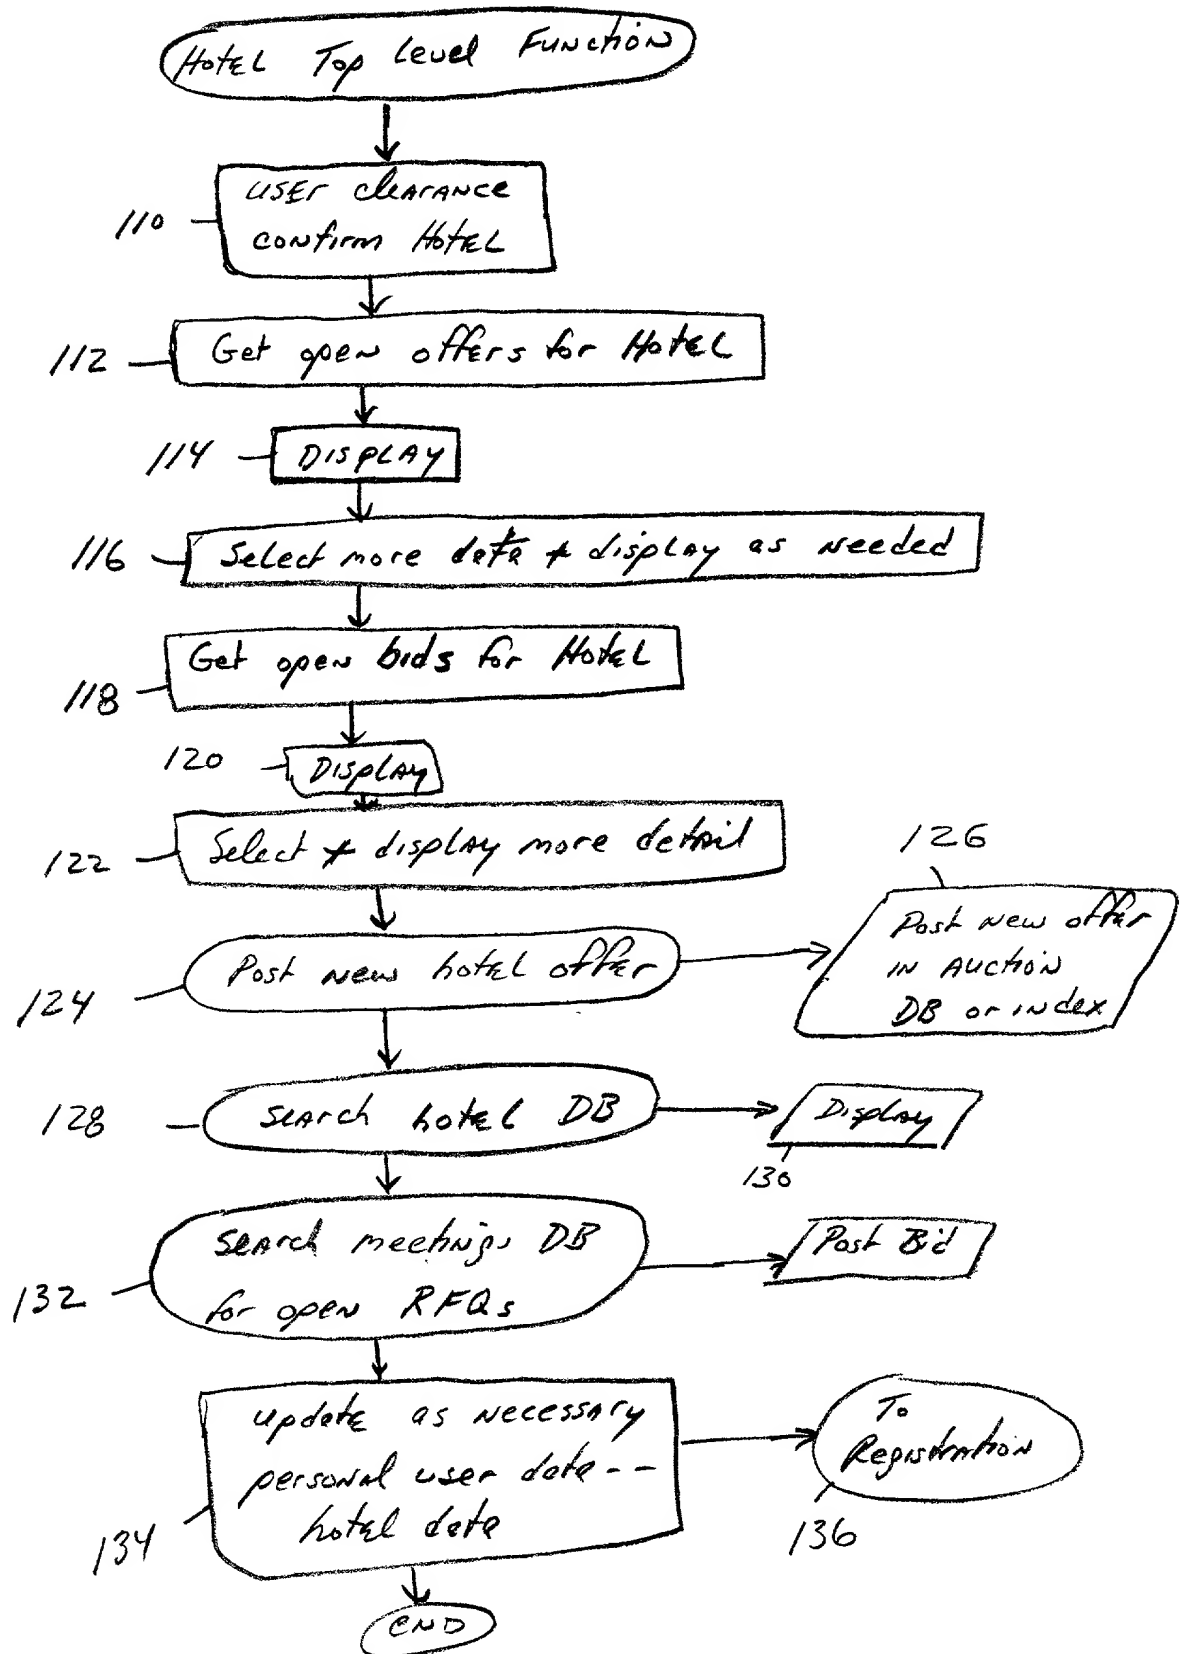 Hotel Top Level Function
User clearance
confirm Hotel
110
Get open offers for Hotel
112
114
Display
116
Select more data + display as needed
Get open bids for Hotel
118
120
Display
122
Select + display more detail
126
Post new offer
in Auction
DB or index
Post new hotel offer
124
128
Search hotel DB
Display
130
Search meetings DB
for open RFQs
Post Bid
132
update as necessary
personal user data--
hotel data
134
To
Registration
136
END